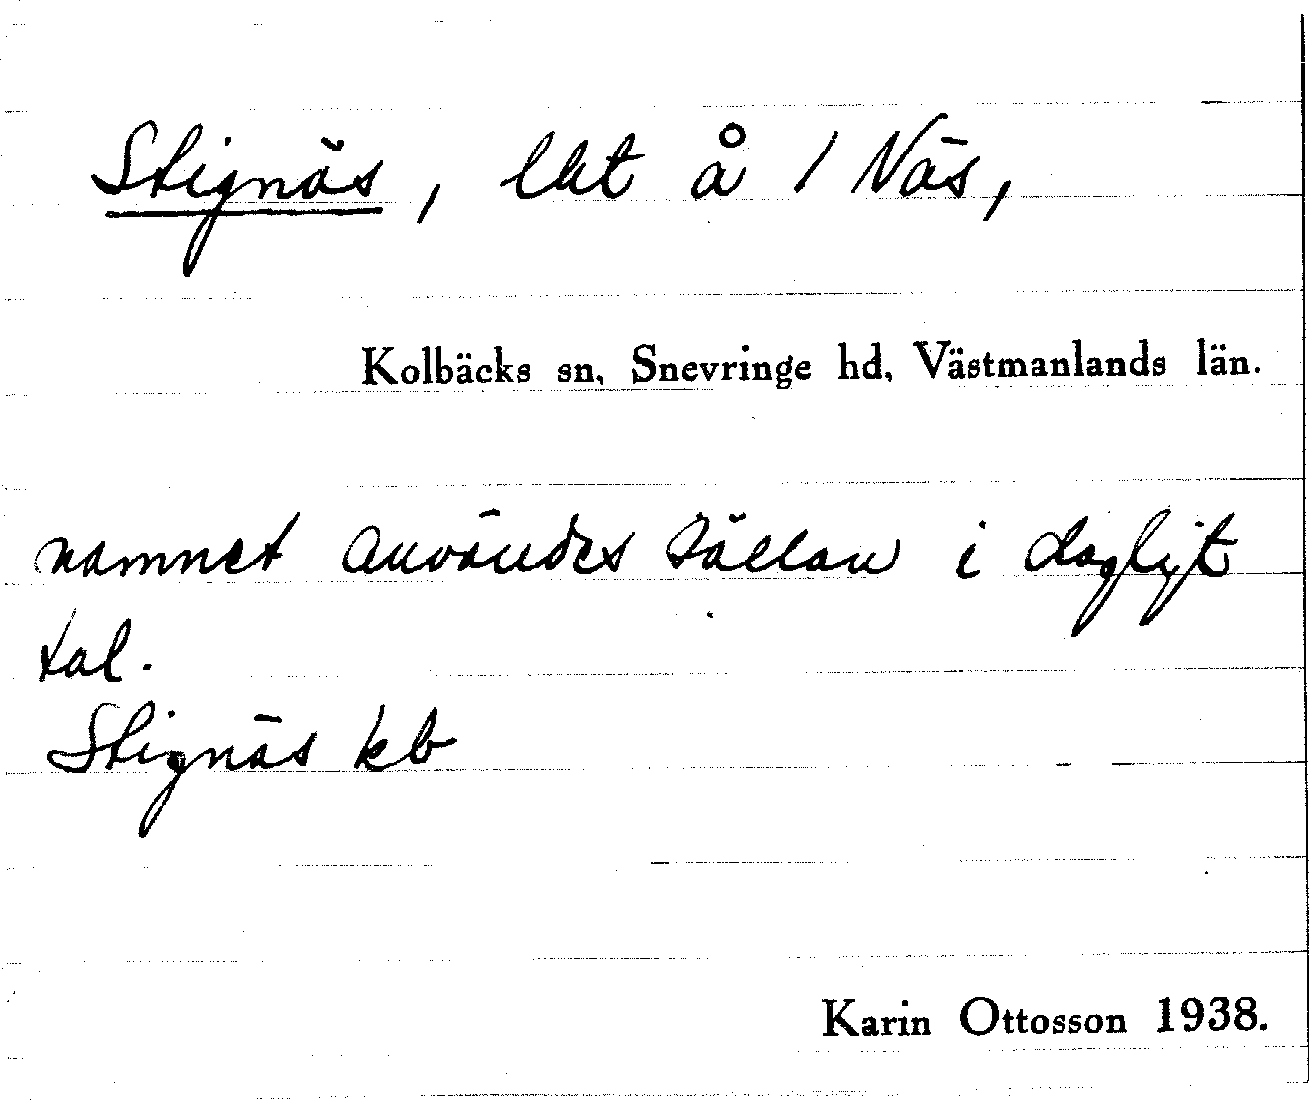 Stignäs, lht å 1 Näs,
Kolbäcks sn, Snevringe hd, Västmanlands län.
namnet användes sällan i dagligt
tal.
Stignäs kb
Karin Ottosson 1938.